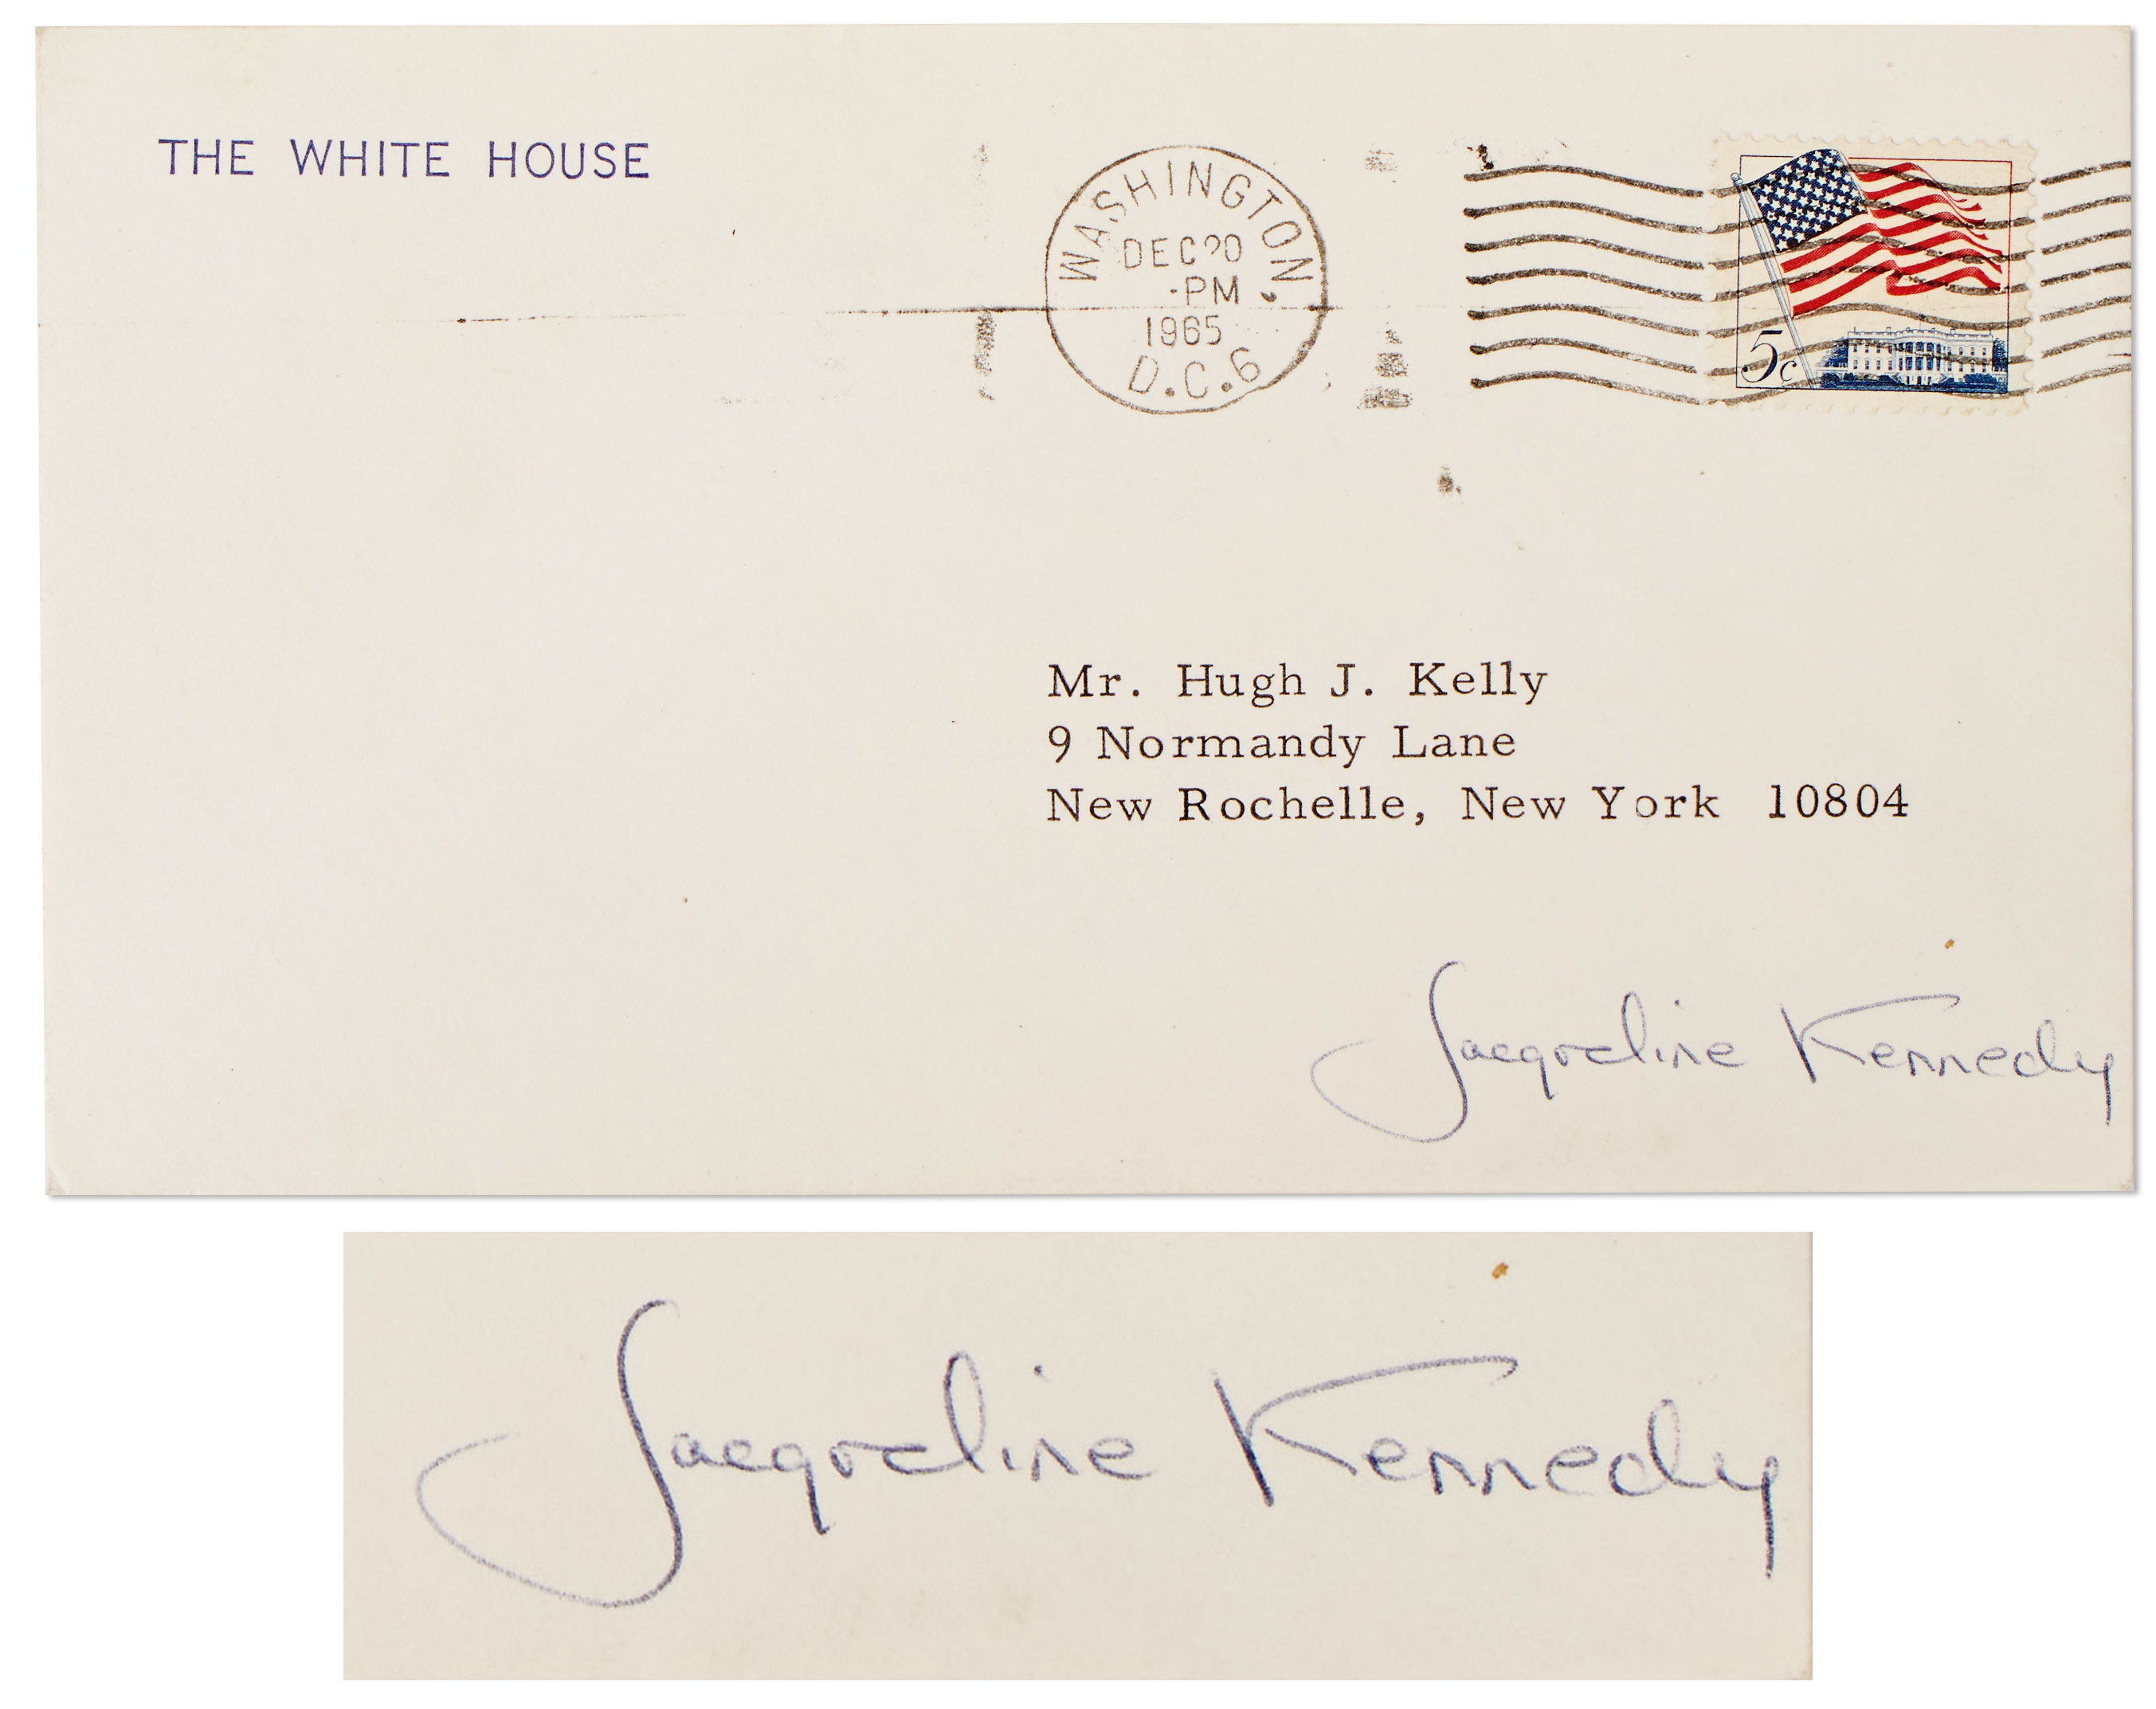 THE WHITE HOUSE
WASHINGTON,
DEC 20
-PM
1965
D.C. 6
5c
Mr. Hugh J. Kelly
9 Normandy Lane
New Rochelle, New York 10804
Jacqueline Kennedy
Jacqueline Kennedy